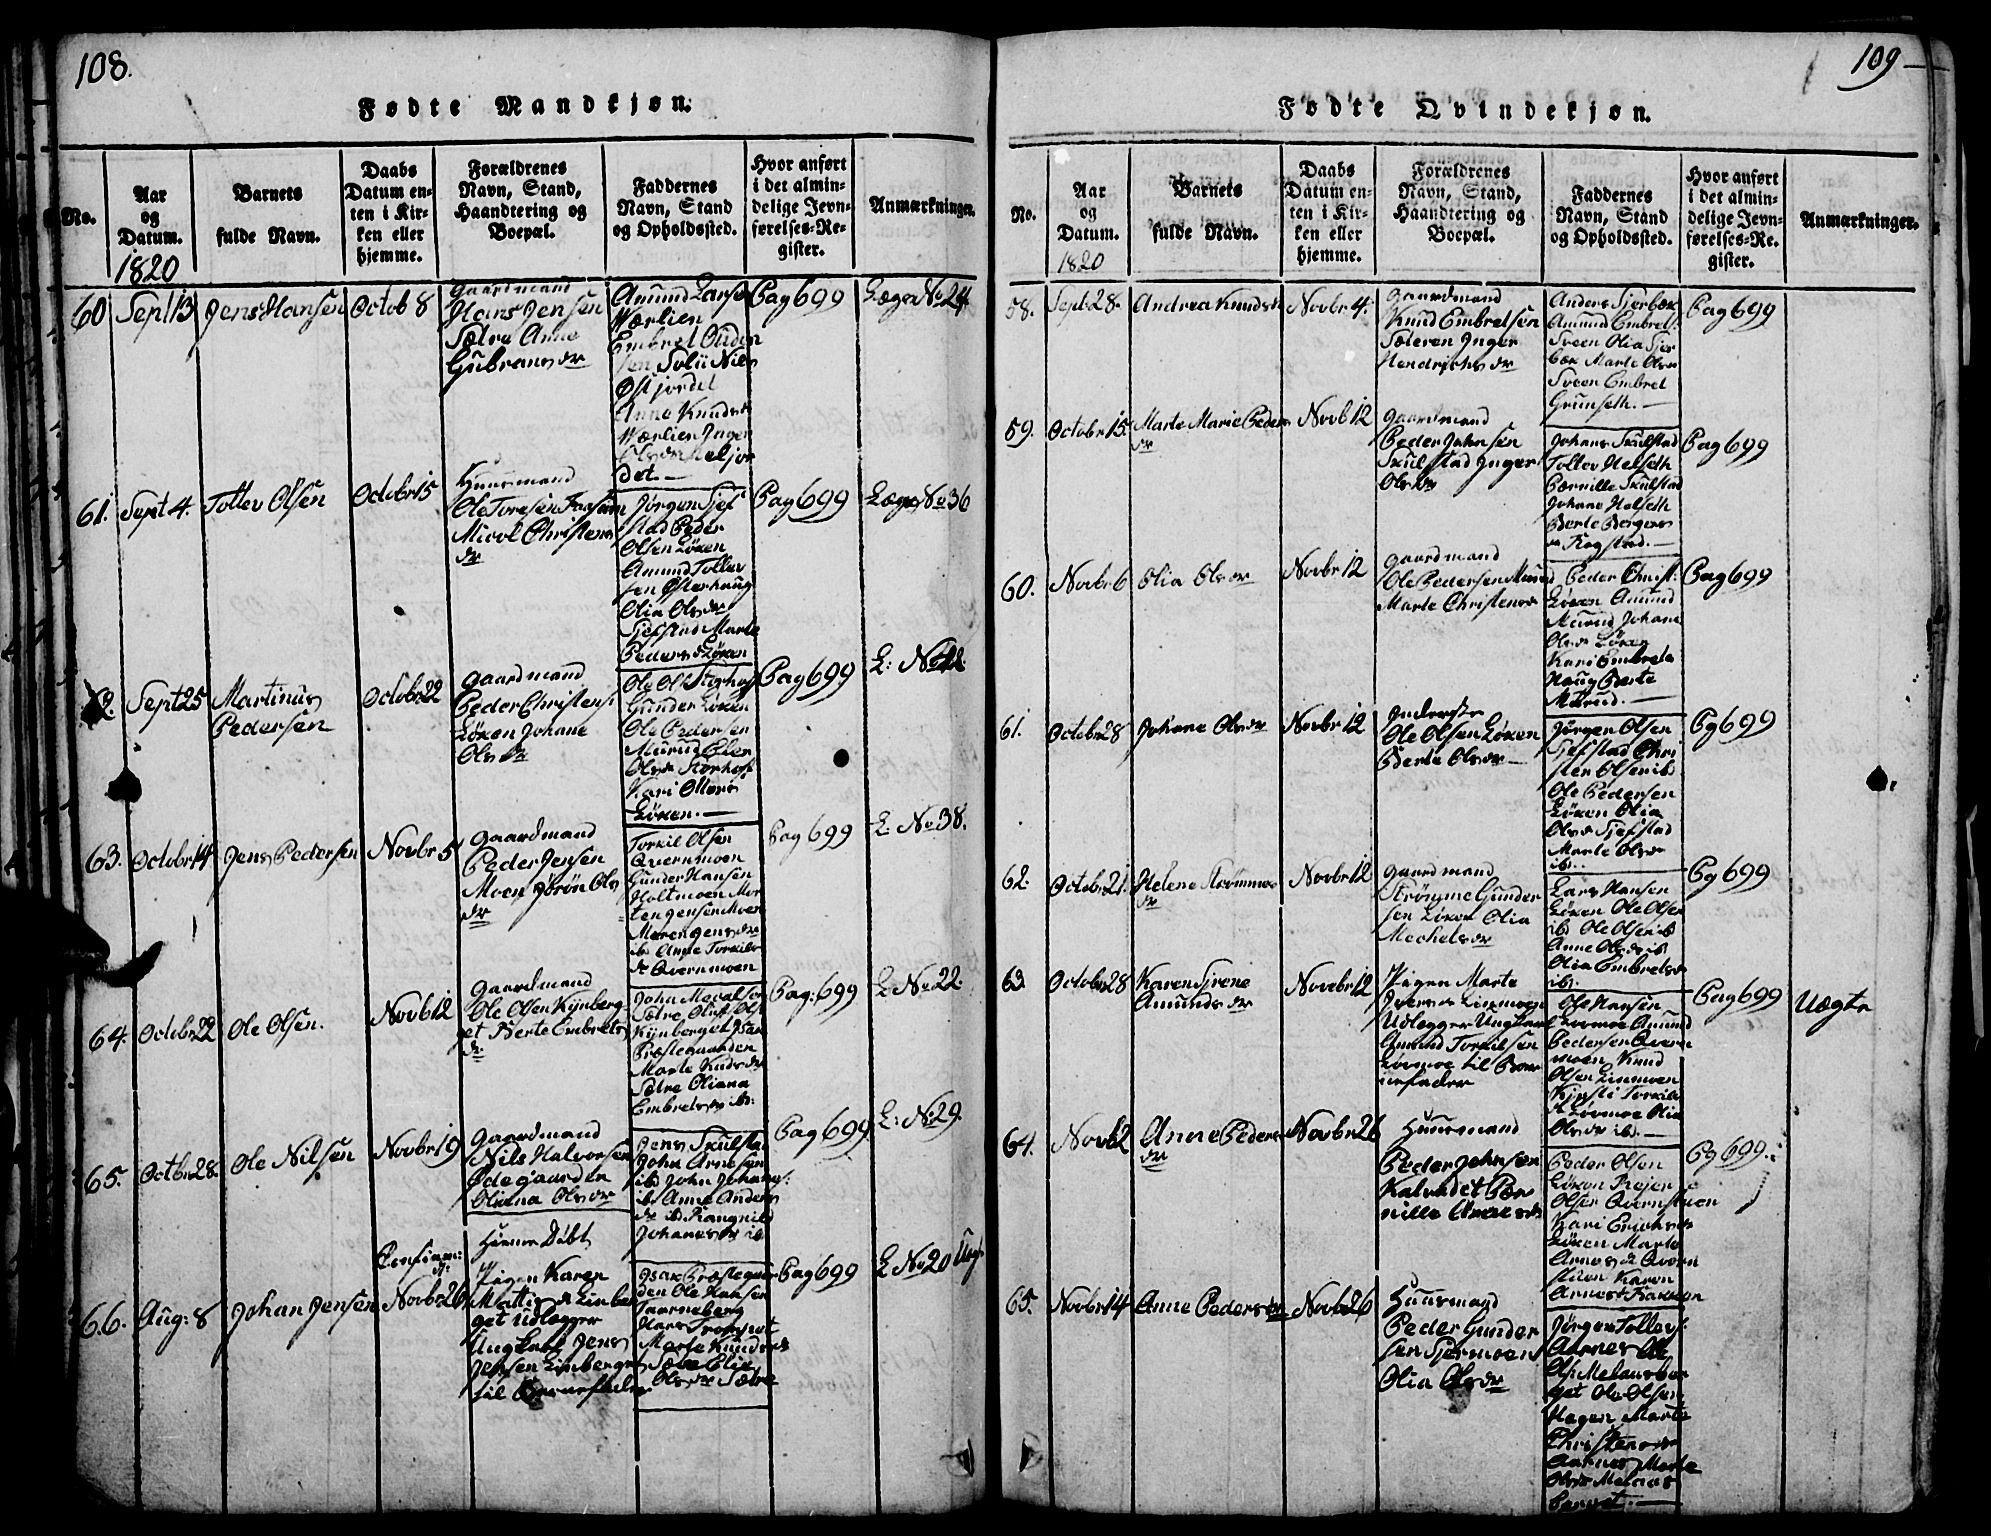 108.
Fødte Mandkjøn.
No.
Aar
og
Datum.
1820
Barnets
fulde Navn.
Daabs
Datum en-
ten i Kir-
ken eller
hjemme.
Forældrenes
Navn, Stand,
Haandtering og
Boepæl.
Faddernes
Navn, Stand
og Opholdssted.
Hvor anført
i det almin-
delige Jevn-
førelses-Re-
gister.
Anmærkninger.
60
Sept 13
Jens Hansen
Octob 8
Gaardmand
Hans Jensen
Sætre Anne
Gubransdr
Amund Larse
Værlien
Embret Ouden
sen Solii Nils
Østjordet
Anne Knudsdr
Værlien Inger
det.
Pag 699
Læger No 24
61.
Sept 4.
Tollev Olsen
Octobr 15
Huusmand
Ole Toresen
Micol Christens
dr
Jørgen Sjef
stad Peder
Olsen Løken
Amund Tollev
sen Østerhaug
Olia Olsdr
Sjefstad Marte
Pedersdr Løken
Pag 699
Læger No 36
62.
Sept 25
Martinus
Pedersen
Octobr 22
Gaardmand
Peder Christens.
Løken Johane
Olsdr
Ole Ols Storhof
Gunder Løken
Ole Pedersen
Murud
Olsdr Storhof
Kari
Løken.
Pag 699
L: No
63.
Octobr 14
Jens Pedersen
Novbr 5
Gaardmand
Peder Jensen
Moen Jørøn Ols
dr
Torkil Olsen
Qvernmoen
Gunder Hansen
Holtmoen Mor
ten Jensen Moen
Maren Jensdr
ib. Anne Torkils
dr Qvernmoen
Pag 699
L: No 38.
64.
Octobr 22
Ole Olsen.
Novb 12
Gaardmand
Ole Olsen Kynberg
et Berte Embrets
dr
John
Sætre Oluf Ols
Kynberget Isac
Præstegaarden
Marte Knudsdr
Sætre Oliana
Embretsdr ib:
Pag: 699
L: No 22.
65.
Octbr 28.
Ole Nilsen
Novbr 19
Gaardmand
Nils Halvorsen
Ødegaarden
Oliana Olsdr
Jens Skulstad
John Arnesen
ib John Johans:
ib. Anne Anders
dr ib Rangnild
Johanesdr ib
Pag 699
L: No 29.
66.
Aug: 8
Johan Jensen
Novbr 26
Hieme Døbt
Pigen Karen
Mattisdr Linber
get udlægger
Ungkarl Jens
Jensen Linberget
til Barnefader
Isac Præstegaar
den Ole Hansen
Gaarneberg
Hans
Marte Knudsdr
Sætre Olia
Olsdr Sætre
Pag 699
L No 20 Uægt
109
Fødte Qvindekjøn.
No.
Aar
og
Datum.
1820
Barnets
fulde Navn.
Daabs
Datum en-
ten i Kir-
ken eller
hjemme.
Forældrenes
Navn, Stand,
Haandtering og
Boepæl.
Faddernes
Navn, Stand
og Opholdssted.
Hvor anført
i det almin-
delige Jevn-
førelses-Re.
gister.
Anmærkninger.
58.
Sept. 28.
Andrea Knudsdr
Novbr 4.
Gaardmand
Knud Embretsen
Sæteren Inger
Hendrichsdr
Anders Sjerbæk
Amund Embrets.
Sveen Olia Sjer
bæk Marte Olsdr
Sveen Embret
Grunseth.
Pag 699
59.
Octobr 15.
Marte Marie Peders
dr
Novb 12
Gaardmand
Peder Johnsen
Skulstad Inger
Olsdr
Johans Skulstad
Tollev Helseth
Pærnille Skulstad
Johane Helseth
Berte Bergers
dr Rogstad.
Pag 699
60.
Novbr 6
Olia Olsdr
Novbr 12
Gaardmand
Ole Pedersen Murud
Marte Christensdr
Peder Christ:
Løken Amund
Murud Johane
Olsdr Løken
Kari Embretsdr
Haug Berte
Murud.
Pag 699
61.
Octobr 28
Johane Olsdr
Novbr 12
Inderster
Ole Olsen Løken
Berte Olsdr
Jørgen Olsen
Sjefstad Chri
sten Olsen ib
Ole Pedersen
Løken Olia
Olsdr Sjefstad
Marte Olsdr
ib.
Pg 699
62.
Octobr 21.
Helene Strømmes
dr
Novbr 12
Gaardmand
Strømme Gunder
sen Løken Olia
Mechelsdr
Lars Hansen
Løken Ole Olsen
ib Ole Olsen ib
Anne Olsdr ib
Olia Embretsdr
ib.
Pg 699
63.
Octobr 28
Karen Sirene
Amundsdr
Novebr 12
Pigen Marte
Iversdr Linmoen
Udlægger Ungkarl
Amund Torkilsen
Løvmoe til Bar
nefader
Ole Hansen
Løvmoe Amund
Pedersen Qvern
moen Knud
Olsen Linmoen
Kjersti Torkils
dr Løvmoe Olia
Olsdr ib.
Pag 699
Uægte
64.
Novb 2
Anne Peders
dr
Novbr 26
Huusmand
Peder Johnsen
Kalvedet Pær
nille Arnesdr
Peder Olsen
Løken
Olsen Qvernstuen
Kari Erichsdr
Løken Marte
Arnesdr Qvern
stuen Karen
Arnesdr
Pg 699.
65.
Novbr 14
Anne Pedersdr
Novbr 26
Huusmand
Peder Gunder
sen Sjermoen
Olia Olsdr
Jørgen Tollevs:
Aarnes Ole
Ols: Melaasber
get Ole Olsen
Hagen Marte
Christensdr
Aarnes Marte
Olsdr Melaas
berget.